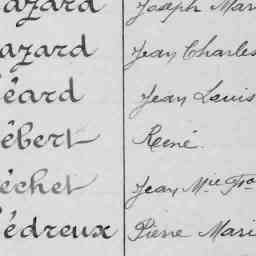 azard Joseph Mari
azard Jean Charles
éard Jean Louis
ébert René.
échet Jean Mie Fço
édreux Pierre Mari